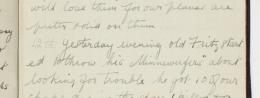 wold load them for our planes are
pretty solid on them
12th Yesterday evening old Fritz start
ed to throw his "Minnewufers" about
looking for trouble he got 10 of our